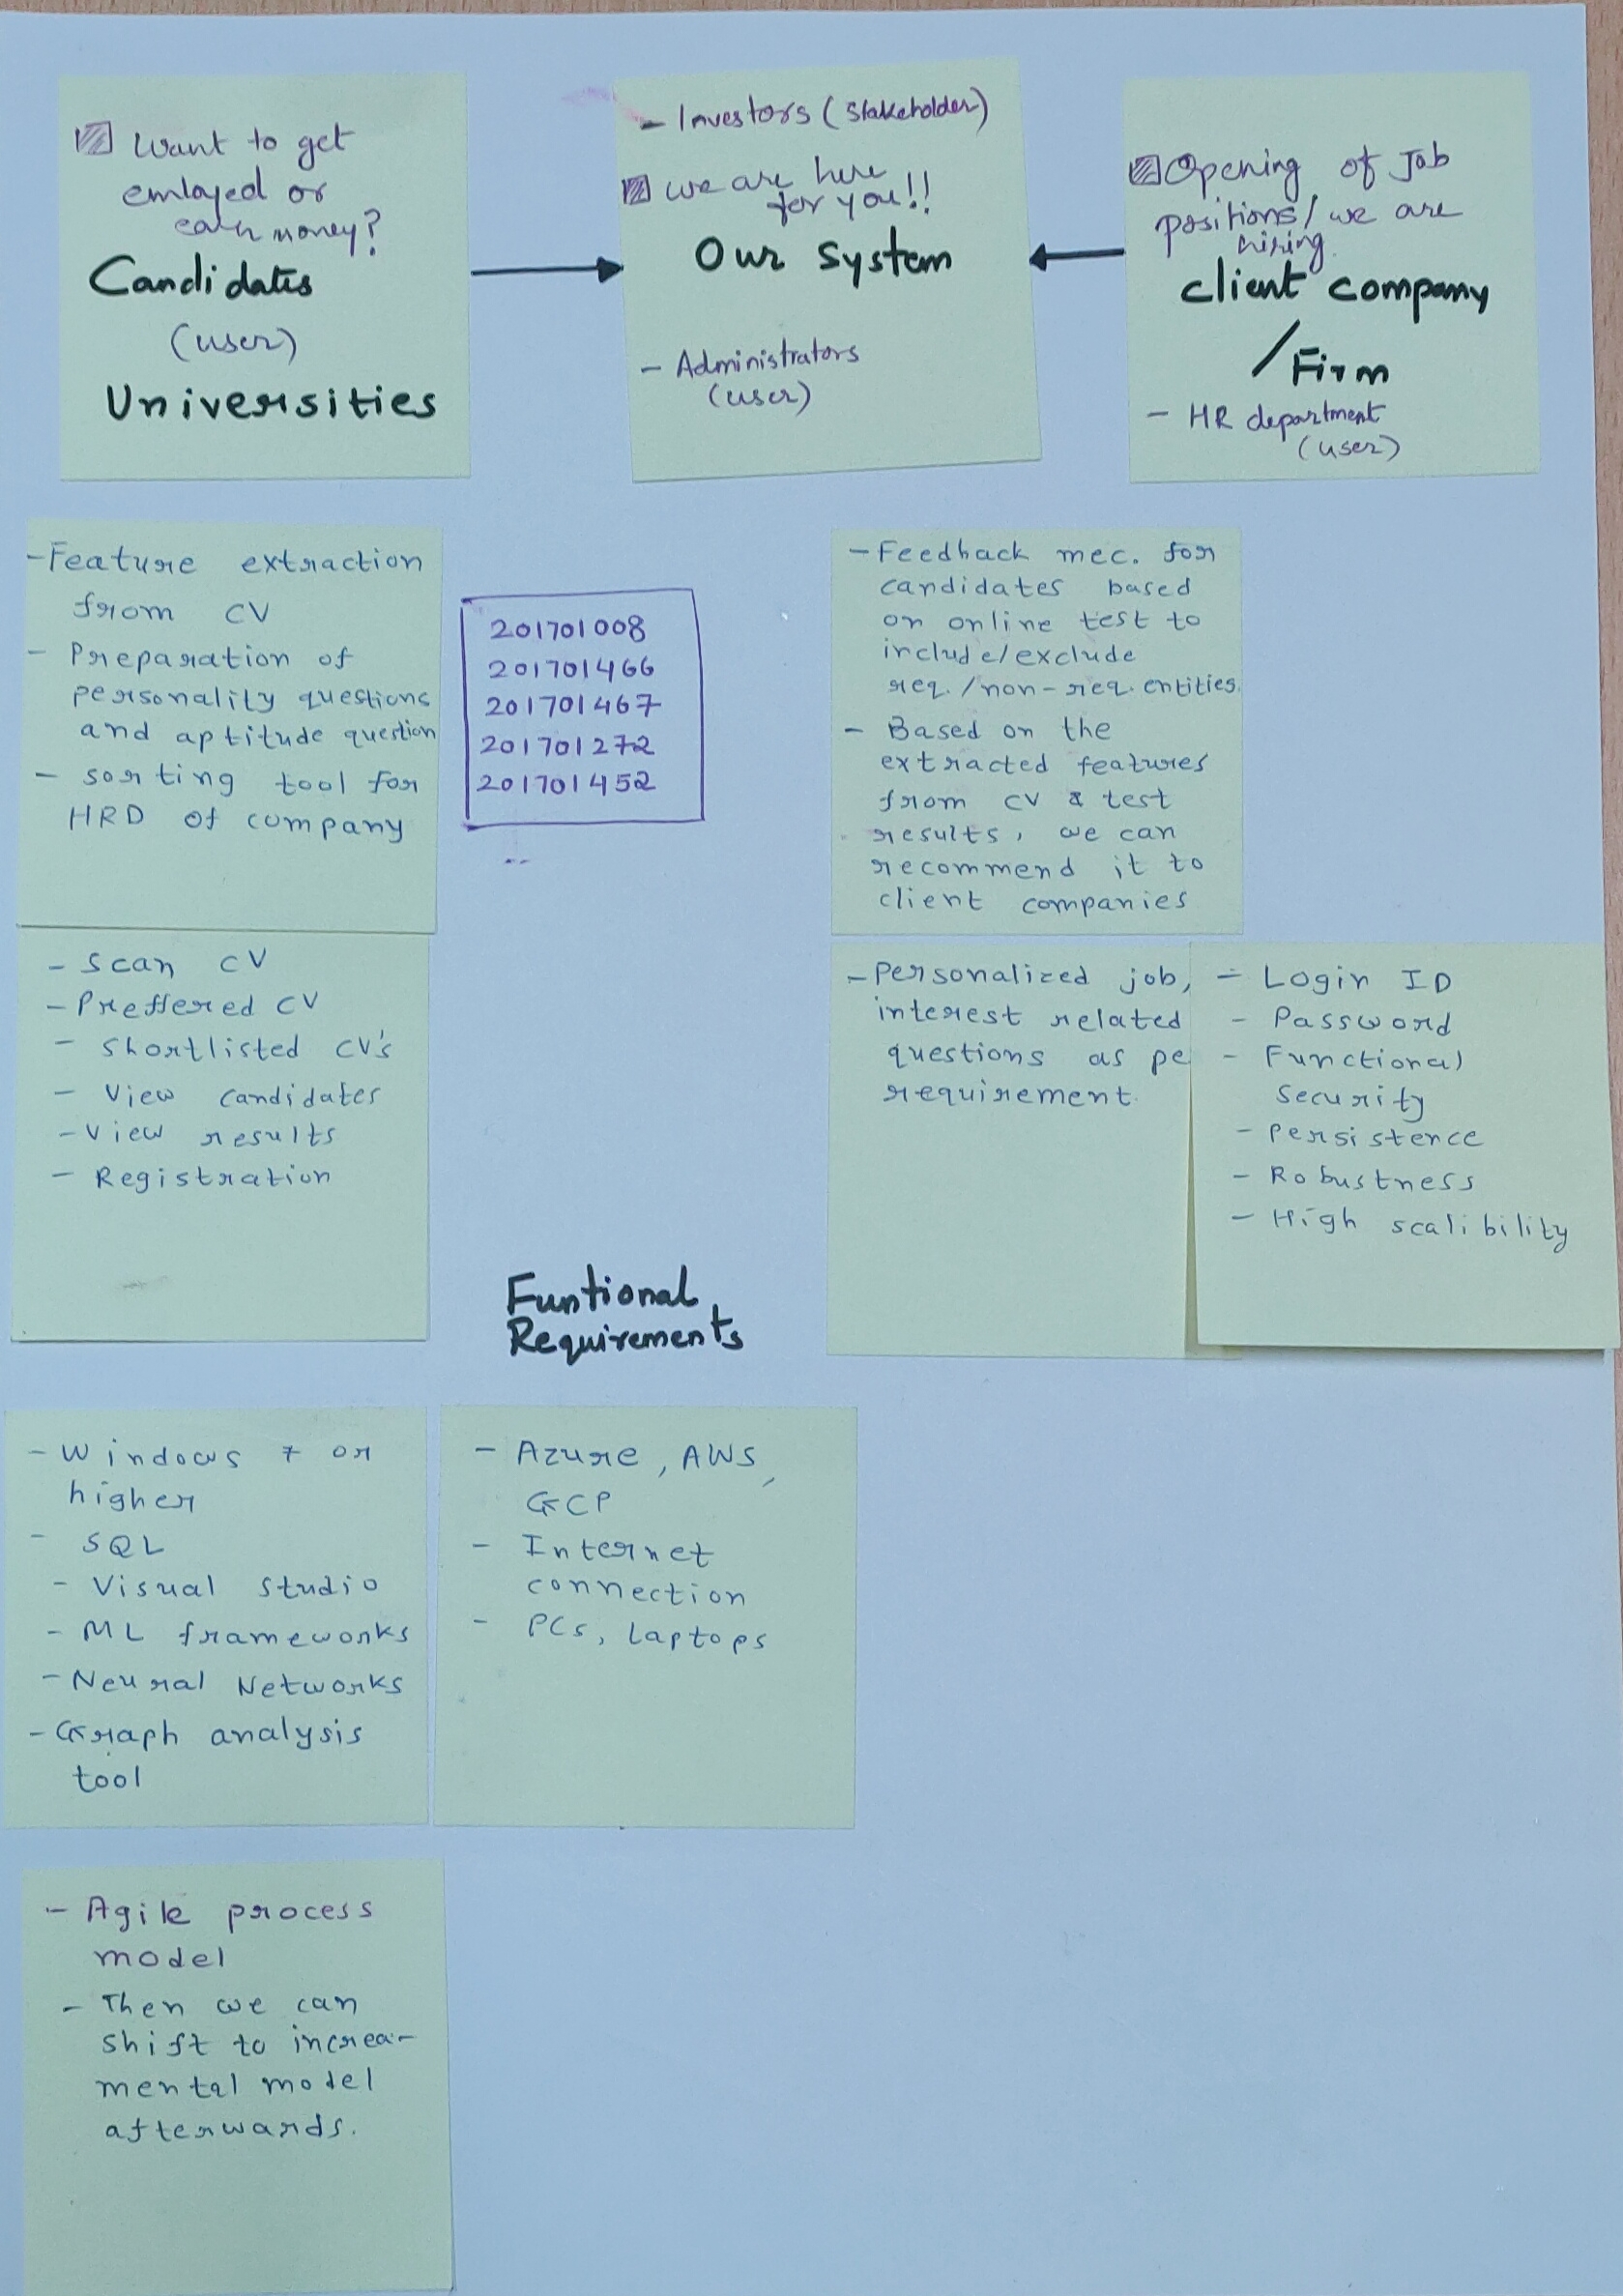 Want to get
emloyed or
earn money?
Candidates
(user)
Universities
- Investors (Stakeholder)
we are here
for you!!
Our System
- Administrators
(user)
Opening of Job
positions/ we are
hiring.
client company
/Firm
- HR department
(user)
- Feature extraction
from CV
- Preparation of
personality questions
and aptitude question
- sorting tool for
HRD of company
201701008
201701466
201701467
201701272
201701452
- Feedback mec. for
candidates based
on online test to
include/exclude
req./non-req. entities.
- Based on the
extracted features
from CV & test
results, we can
recommend it to
client companies
- Scan CV
- Preffered CV
- Shortlisted CV's
- View candidates
- View results
- Registration
- Personalized job,
interest related
questions as pe
requirement.
- Login ID
- Password
- Functional
Security
- Persistence
- Robustness
- High scalibility
Funtional
Requirements
- Windows 7 or
higher
- SQL
- Visual studio
- ML frameworks
- Neural Networks
- Graph analysis
tool
- Azure, AWS,
GCP
- Internet
connection
- PCs, Laptops
- Agile process
model
- Then we can
shift to increa-
mental model
afterwards.